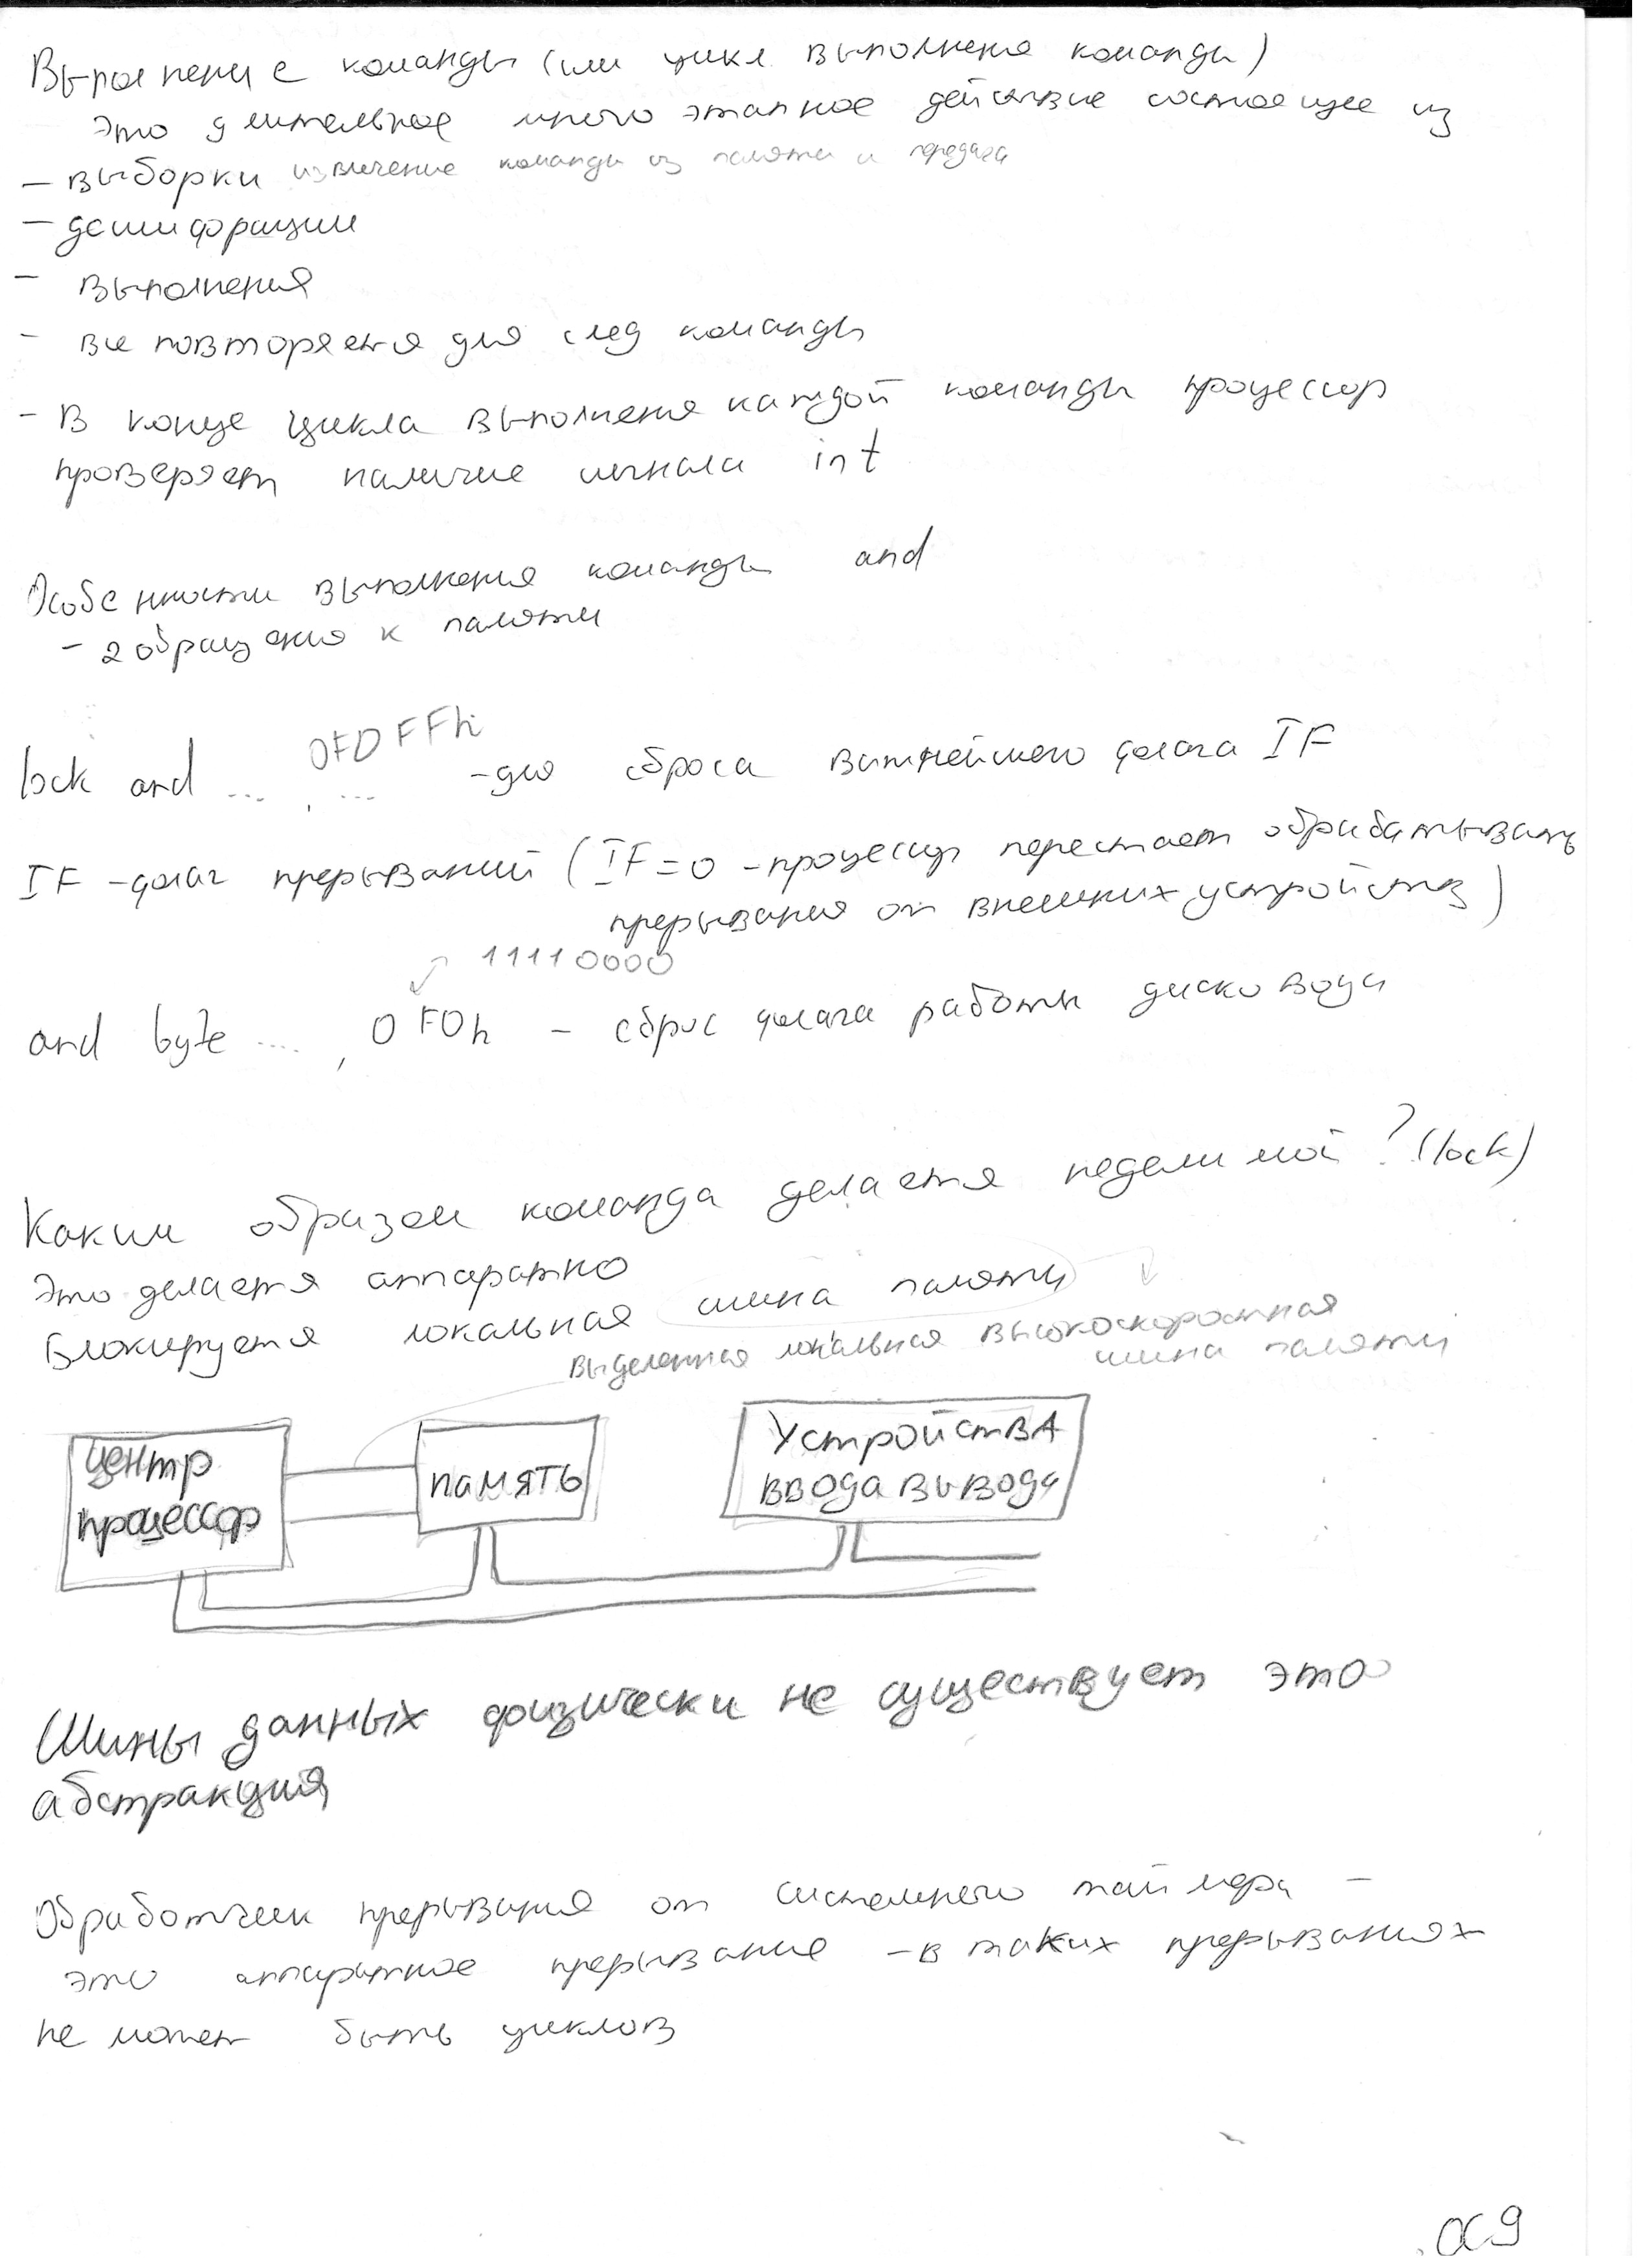 Выполнение команды (или цикл выполнения команды)
это длительное много этапное действие состоящее из
- выборки извлечение команды из памяти и передача
- дешифрации
- выполнения
- все повторяется для след команды
- В конце цикла выполнения каждой команды процессор
проверяет наличие сигнала int
Особенности выполнения команды and
- 2 обращения к памяти
0FDFFh
lock and ... , ... - для сброса важнейшего флага IF
IF - флаг прерываний (IF=0 - процессор перестает обрабатывать
прерывания от внешних устройств)
11110000
and byte ...., 0F0h - сброс флага работы дисковода
Каким образом команда делается неделимой? (lock)
Это делается аппаратно
Блокируется локальная шина памяти
выделенная локальная высокоскоростная
шина памяти
центр
процессор
память
Устройства
ввода вывода
Шины данных физически не существует это
абстракция
Обработчик прерывания от системного таймера -
это аппаратное прерывание - в таких прерываниях
не может быть циклов
ОС9